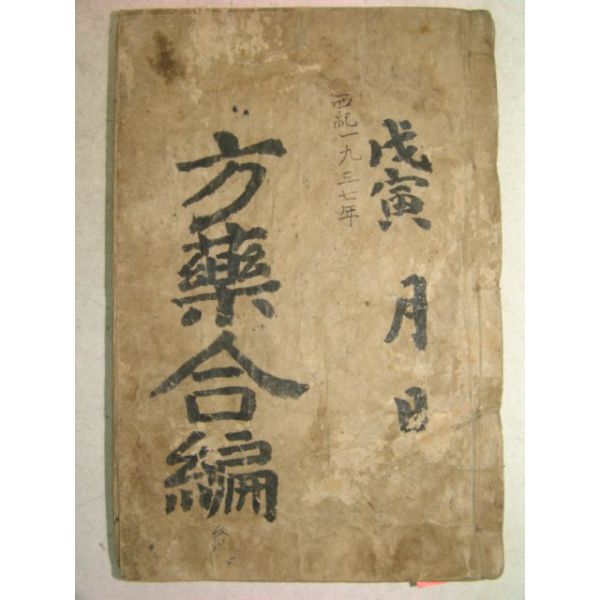 戊寅 月 日
西紀一九三七年
方藥合編